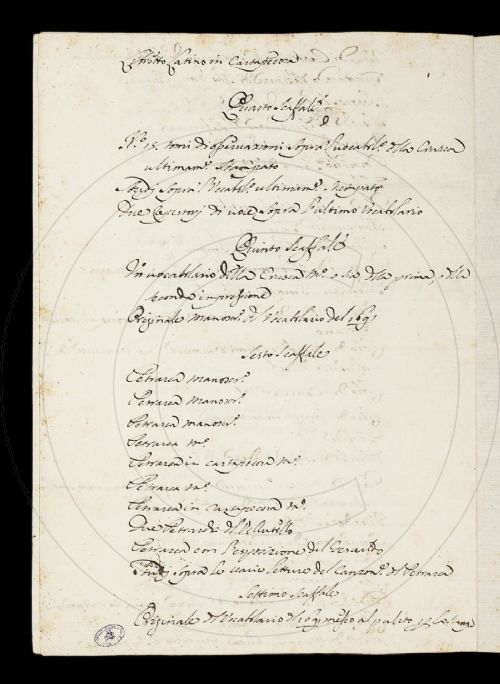 Libretto Latino in Cartapecora
Quarto Scaffale
N.º 15. tomi di osservazioni sopra il vocabil.º della Crusca
ultimam.e Stampato
Studj sopra il Vocab.º ultimam.e Stampato
due di voci sopra l'ultimo Vocabolario
Quinto Scaffale
Un vocabolario della Crusca m.º e sia della prima, e della
seconda impressione
Originale manoscr.º del Vocabolario del 1691
Sesto Scaffale
Petrarca manoscr.º
Petrarca manoscr.º
Petrarca manoscr.º
Petrarca m.º
Petrarca in cartapecora m.º
Petrarca m.º
Petrarca in cartapecora m.º
due Petrarchi del Vellutello
Petrarca con l'esposizione del Gesualdo
Studj sopra le varie letture del Canzon.º del Petrarca
Settimo Scaffale
Originale del Vocabolario del 1691 messo al pulito